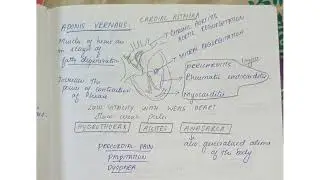 ADONIS VERNALIS
CARDIAC ASTHMA
CHRONIC AORTITIS
AORTIC REGURGITATION
MITRAL REGURGITATION
Muscles of heart are
in stages of
fatty degeneration
Pericarditis
Rheumatic endocarditis
Myocarditis
Increases the
power of contraction
of
LOW VITALITY WITH WEAK HEART
Slow weak pulse
HYDROTHORAX
ASCITES
ANASARCA
PRECORDIAL PAIN
PALPITATION
DYSPNEA
aka generalised edema
of the body